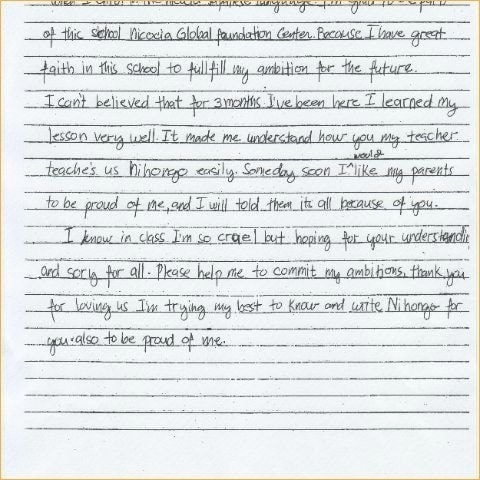 of this school Nicocia Global Foundation Center. Because I have great
faith in this school to fullfill my ambition for the future.
I can't believed that for 3 months I've been here I learned my
lesson very well. It made me understand how you my teacher
teache's us Nihongo easily. Someday soon I would like my parents
to be proud of me, and I will told them its all because of you.
I know in class I'm so crael but hoping for your understandin
and sorry for all. Please help me to commit my ambitions. thank you
for loving us I'm trying my best to know and write Nihongo for
you. also to be proud of me.